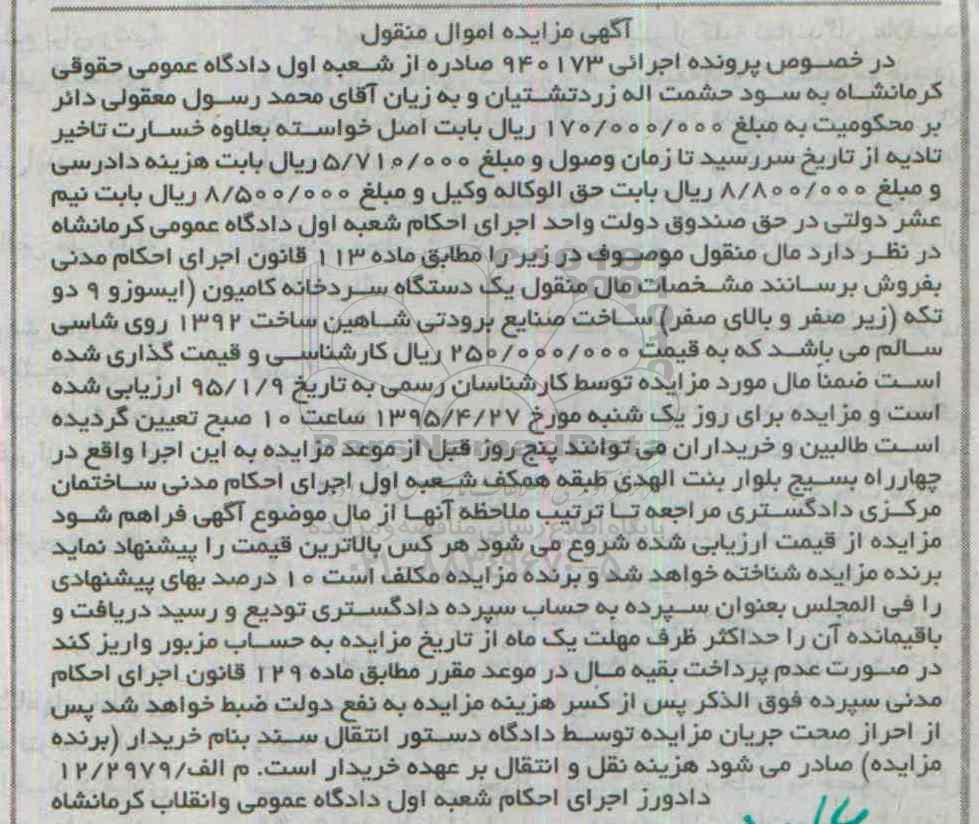 آگهی مزایده اموال منقول
در خصوص پرونده اجرائی ۹۴۰۱۷۳ صادره از شعبه اول دادگاه عمومی حقوقی
کرمانشاه به سود حشمت اله زردتشتیان و به زیان آقای محمد رسول معقولی دائر
بر محکومیت به مبلغ ۱۷۰/۰۰۰/۰۰۰ ریال بابت اصل خواسته بعلاوه خسارت تاخیر
تادیه از تاریخ سررسید تا زمان وصول و مبلغ ۵/۷۱۰/۰۰۰ ریال بابت هزینه دادرسی
و مبلغ ۸/۸۰۰/۰۰۰ ریال بابت حق الوکاله وکیل و مبلغ ۸/۵۰۰/۰۰۰ ریال بابت نیم
عشر دولتی در حق صندوق دولت واحد اجرای احکام شعبه اول دادگاه عمومی کرمانشاه
در نظر دارد مال منقول موصوف در زیر را مطابق ماده ۱۱۳ قانون اجرای احکام مدنی
بفروش برسانند مشخصات مال منقول یک دستگاه سردخانه کامیون (ایسوزو ۹ دو
تکه (زیر صفر و بالای صفر) ساخت صنایع برودتی شاهین ساخت ۱۳۹۲ روی شاسی
سالم می باشد که به قیمت ۲۵۰/۰۰۰/۰۰۰ ریال کارشناسی و قیمت گذاری شده
است ضمناً مال مورد مزایده توسط کارشناسان رسمی به تاریخ ۹۵/۱/۹ ارزیابی شده
است و مزایده برای روز یک شنبه مورخ ۱۳۹۵/۴/۲۷ ساعت ۱۰ صبح تعیین گردیده
است طالبین و خریداران می توانند پنج روز قبل از موعد مزایده به این اجرا واقع در
چهارراه بسیج بلوار بنت الهدی طبقه همکف شعبه اول اجرای احکام مدنی ساختمان
مرکزی دادگستری مراجعه تا ترتیب ملاحظه آنها از مال موضوع آگهی فراهم شود
مزایده از قیمت ارزیابی شده شروع می شود هر کس بالاترین قیمت را پیشنهاد نماید
برنده مزایده شناخته خواهد شد و برنده مزایده مکلف است ۱۰ درصد بهای پیشنهادی
را فی المجلس بعنوان سپرده به حساب سپرده دادگستری تودیع و رسید دریافت و
باقیمانده آن را حداکثر ظرف مهلت یک ماه از تاریخ مزایده به حساب مزبور واریز کند
در صورت عدم پرداخت بقیه مال در موعد مقرر مطابق ماده ۱۲۹ قانون اجرای احکام
مدنی سپرده فوق الذکر پس از کسر هزینه مزایده به نفع دولت ضبط خواهد شد پس
از احراز صحت جریان مزایده توسط دادگاه دستور انتقال سند بنام خریدار (برنده
مزایده) صادر می شود هزینه نقل و انتقال بر عهده خریدار است. م الف/۱۲/۲۹۷۹
دادورز اجرای احکام شعبه اول دادگاه عمومی وانقلاب کرمانشاه
ParsNamadData